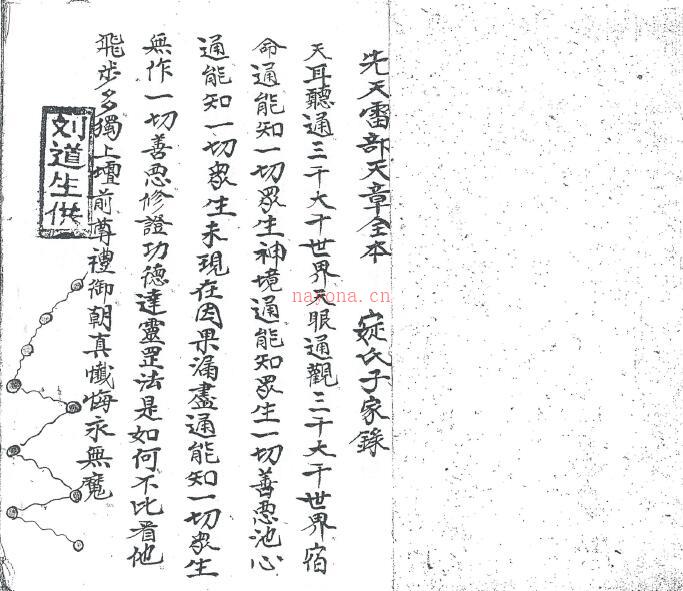 先天雷部天章全本 㝎氏子家錄
天耳聽通三千大千世界天眼通觀三千大千世界宿
命通能知一切眾生神境通能知眾生一切善恶池心
通能知一切眾生未現在因果漏盡通能知一切眾生
無作一切善恶修證功德達靈罡法是如何不比看他
飛步多獨上壇前尊禮御朝真懺悔永無魔
刘道生供
nayona.cn